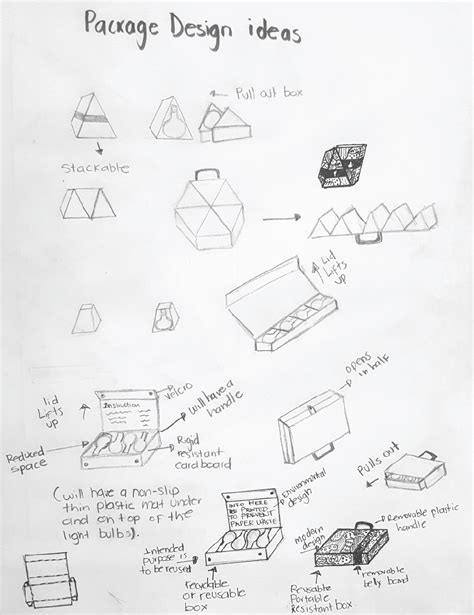 Package Design ideas
Pull out box
Stackable
Lid
Lifts
up
lid
Lifts
up
Instruction
velcro
will have a
handle
Reduced
space
Rigid
resistant
cardboard
opens
in half
(will have a non-slip
thin plastic mat under
and on top of the
light bulbs).
INTO HERE
IS PRINTED
TO PREVENT
PAPER WASTE
Environmental
design
Pulls out
Removable plastic
handle
modern
design
Intended
purpose is
to be reused
recyclable
or reusable
box
Reusable
Portable
Resistant box
removable
belly band